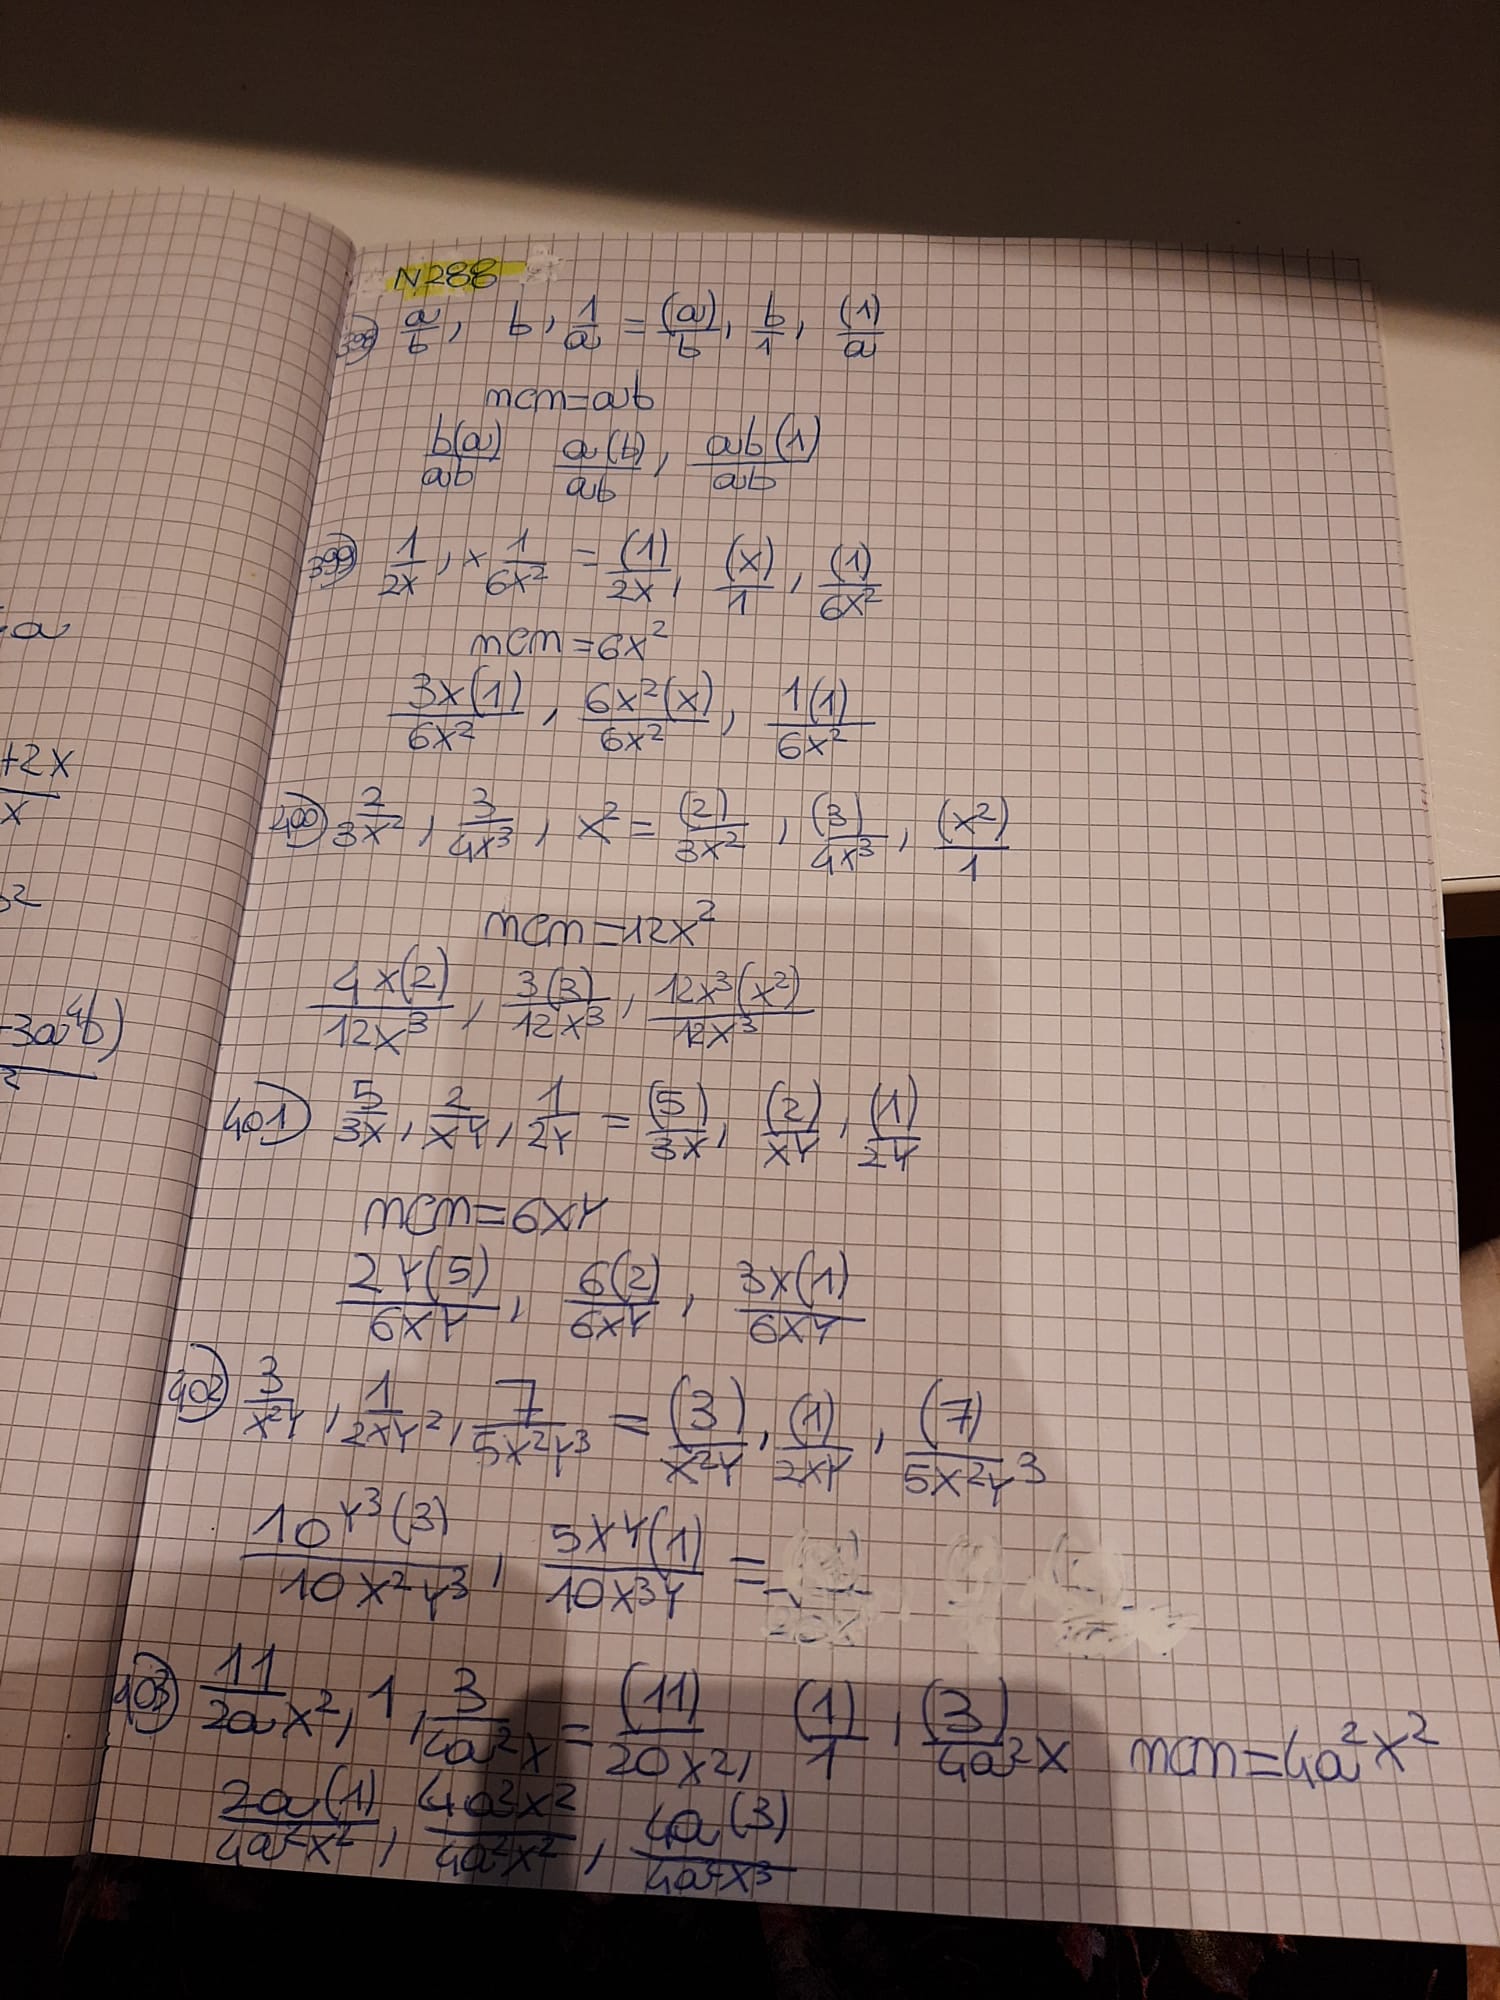 N288
398) a/b, b, 1/a = (a)/b, b/1, (1)/a
mcm=ab
b(a)/ab a(b)/ab, ab(1)/ab
399) 1/2x, x 1/6x² = (1)/2x, (x)/1, (1)/6x²
mcm=6x²
3x(1)/6x², 6x²(x)/6x², 1(1)/6x²
400) 2/3x², 3/4x³, x² = (2)/3x², (3)/4x³, (x²)/1
mcm=12x²
4x(2)/12x³, 3(3)/12x³, 12x³(x²)/12x³
401) 5/3x, 2/xy, 1/2y = (5)/3x, (2)/xy, (1)/2y
mcm=6xy
2y(5)/6xy, 6(2)/6xy, 3x(1)/6xy
402) 3/x²y, 1/2xy², 7/5x²y³ = (3)/x²y, (1)/2xy, (7)/5x²y³
10y³(3)/10x²y³, 5xy(1)/10x³y =
403) 11/2ax², 1, 3/4a²x = (11)/20x², (1)/1, (3)/4a²x mcm=4a²x²
2a(1)/4a²x², 4a²x²/4a²x², 4a(3)/4a²x³
a
+2x
x
2
-3a⁴b)
2